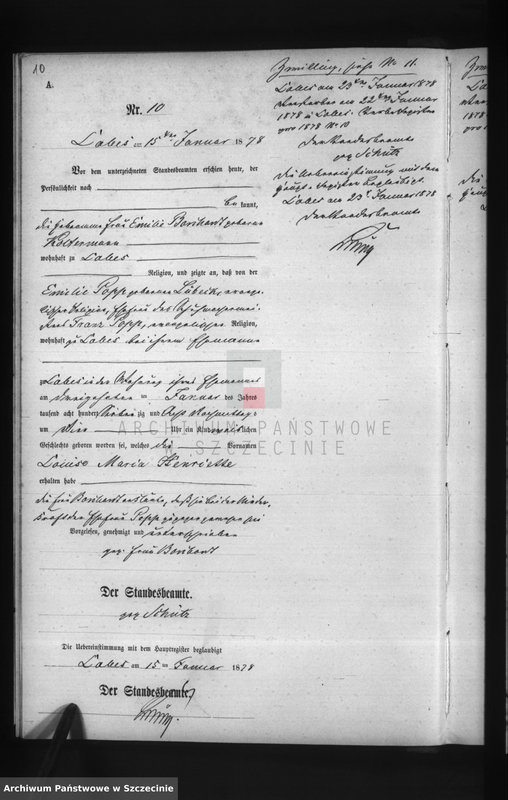 10
A.
Nr. 10
Labes am 15ten Januar 1878
Vor dem unterzeichneten Standesbeamten erschien heute, der
Persönlichkeit nach
be kannt,
die Hebamme Frau Emilie Borchardt geborene
Kostermann
wohnhaft zu Labes
Religion, und zeigte an, daß von der
Emilie Popp geborene Lübeck, evange-
lischer Religion, Ehefrau des Schuhmachermei-
sters Franz Popp, evangelischer Religion,
wohnhaft zu Labes bei ihrem Ehemanne
zu Labes in der Wohnung ihres Ehemannes
am dreizehnten Januar des Jahres
tausend acht hundert sieben zig und acht Nachmittags
um vier Uhr ein Kind weiblichen
Geschlechts geboren worden sei, welches die Vornamen
Louise Maria Henriette
erhalten habe
die Frau Borchardt erklärte, daß sie bei der Nieder-
kunft der Ehefrau Popp zugegen gewesen sei
Vorgelesen, genehmigt und unterschrieben
gez. Frau Borchardt
Der Standesbeamte.
gez Schütz
Die Uebereinstimmung mit dem Hauptregister beglaubigt
Labes am 15ten Januar 1878
Der Standesbeamte.
Zwilling, siehe No 11.
Labes am 23ten Januar 1878
Verstorben am 22ten Januar
1878 zu Labes. Sterberegister
pro 1878 No 10
Der Standesbeamte
gez Schütz
Die Uebereinstimmung mit dem
Haupt-Register beglaubigt.
Labes am 23t Januar 1878
Der Standesbeamte
ARCHIWUM PAŃSTWOWE
W SZCZECINIE
Archiwum Państwowe w Szczecinie